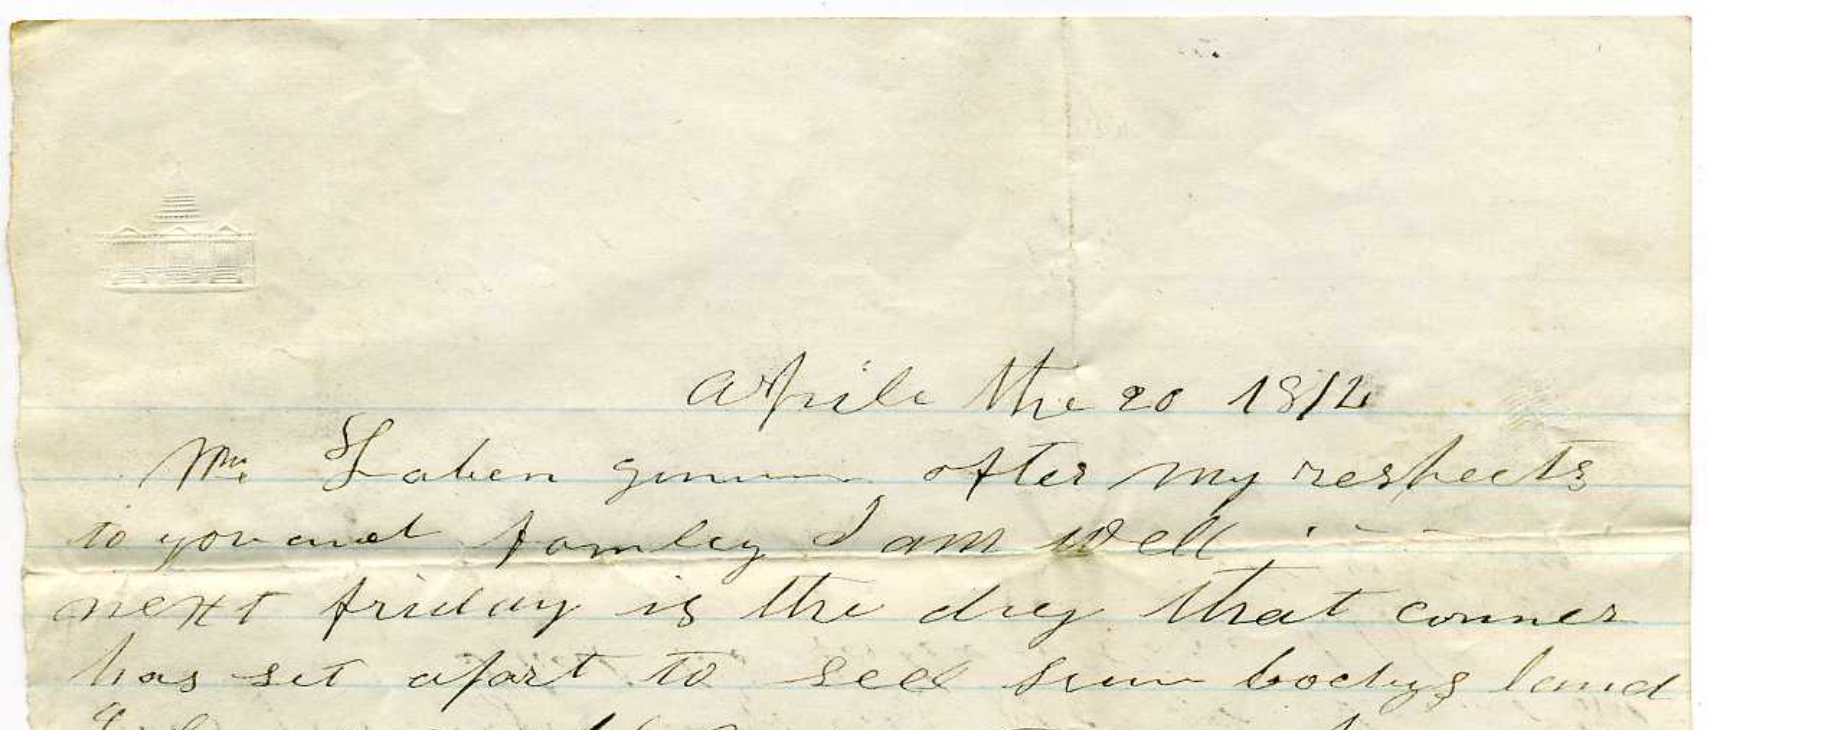 Aprile the 20 1872
Mr. Laben after my respects
to you and famley I am well
next friday is the day that conner
has set apart to sell sum bodys land